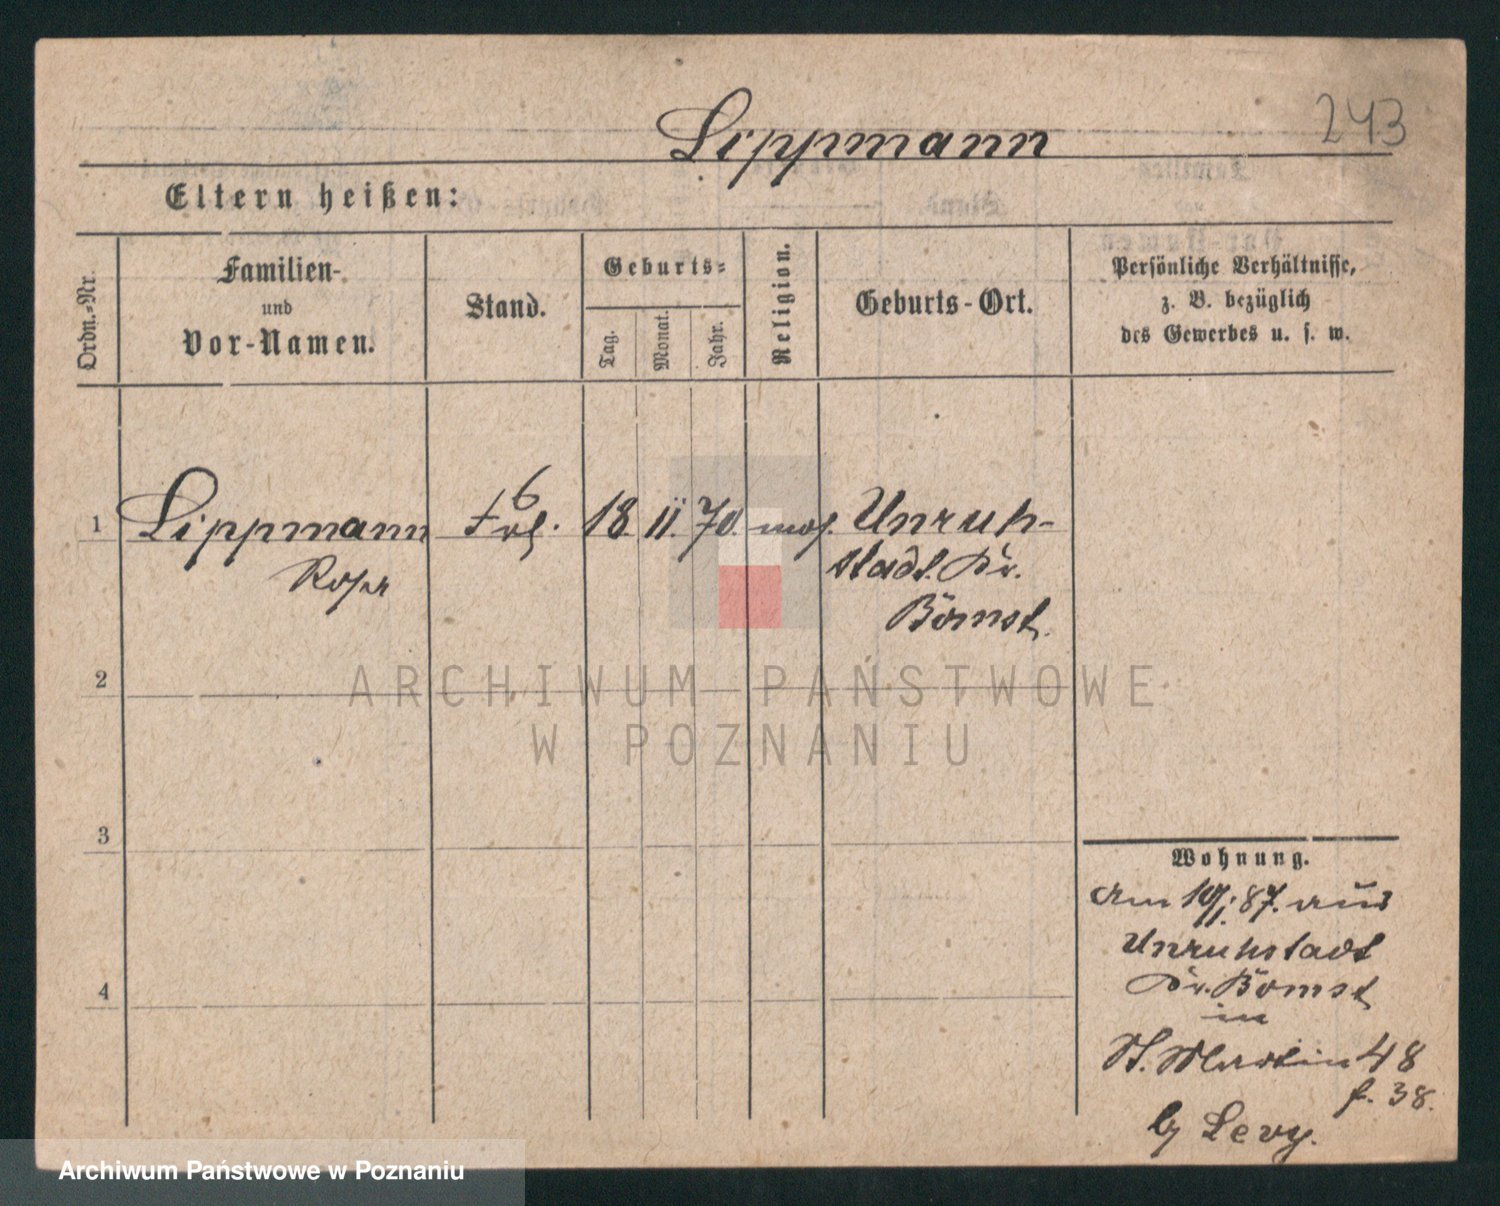 243
Lippmann
Eltern heißen:
Ordn.-Nr.
Familien-
und
Vor-Namen.
Stand.
Geburts-
Tag.
Monat.
Jahr.
Religion.
Geburts-Ort.
Persönliche Verhältnisse,
z. B. bezüglich
des Gewerbes u. s. w.
6
1 Lippmann Frl. 18. II. 70. mos. Unruh-
Rosa stadt. Kr.
Bomst.
2
ARCHIWUM PAŃSTWOWE
W POZNANIU
3
4
Wohnung.
Am 19/1. 87. aus
Unruhstadt
Kr. Bomst
in
St. Martin 48
f. 38.
b/ Levy.
Archiwum Państwowe w Poznaniu